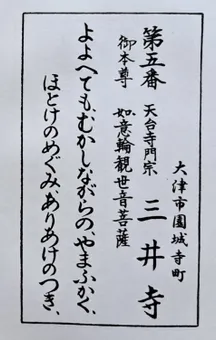 第五番
天台寺門宗
大津市園城寺町
三井寺
御本尊
如意輪観世音菩薩
よよへても、むかしながらの、やまふかく、
ほとけのめぐみ、ありあけのつき、